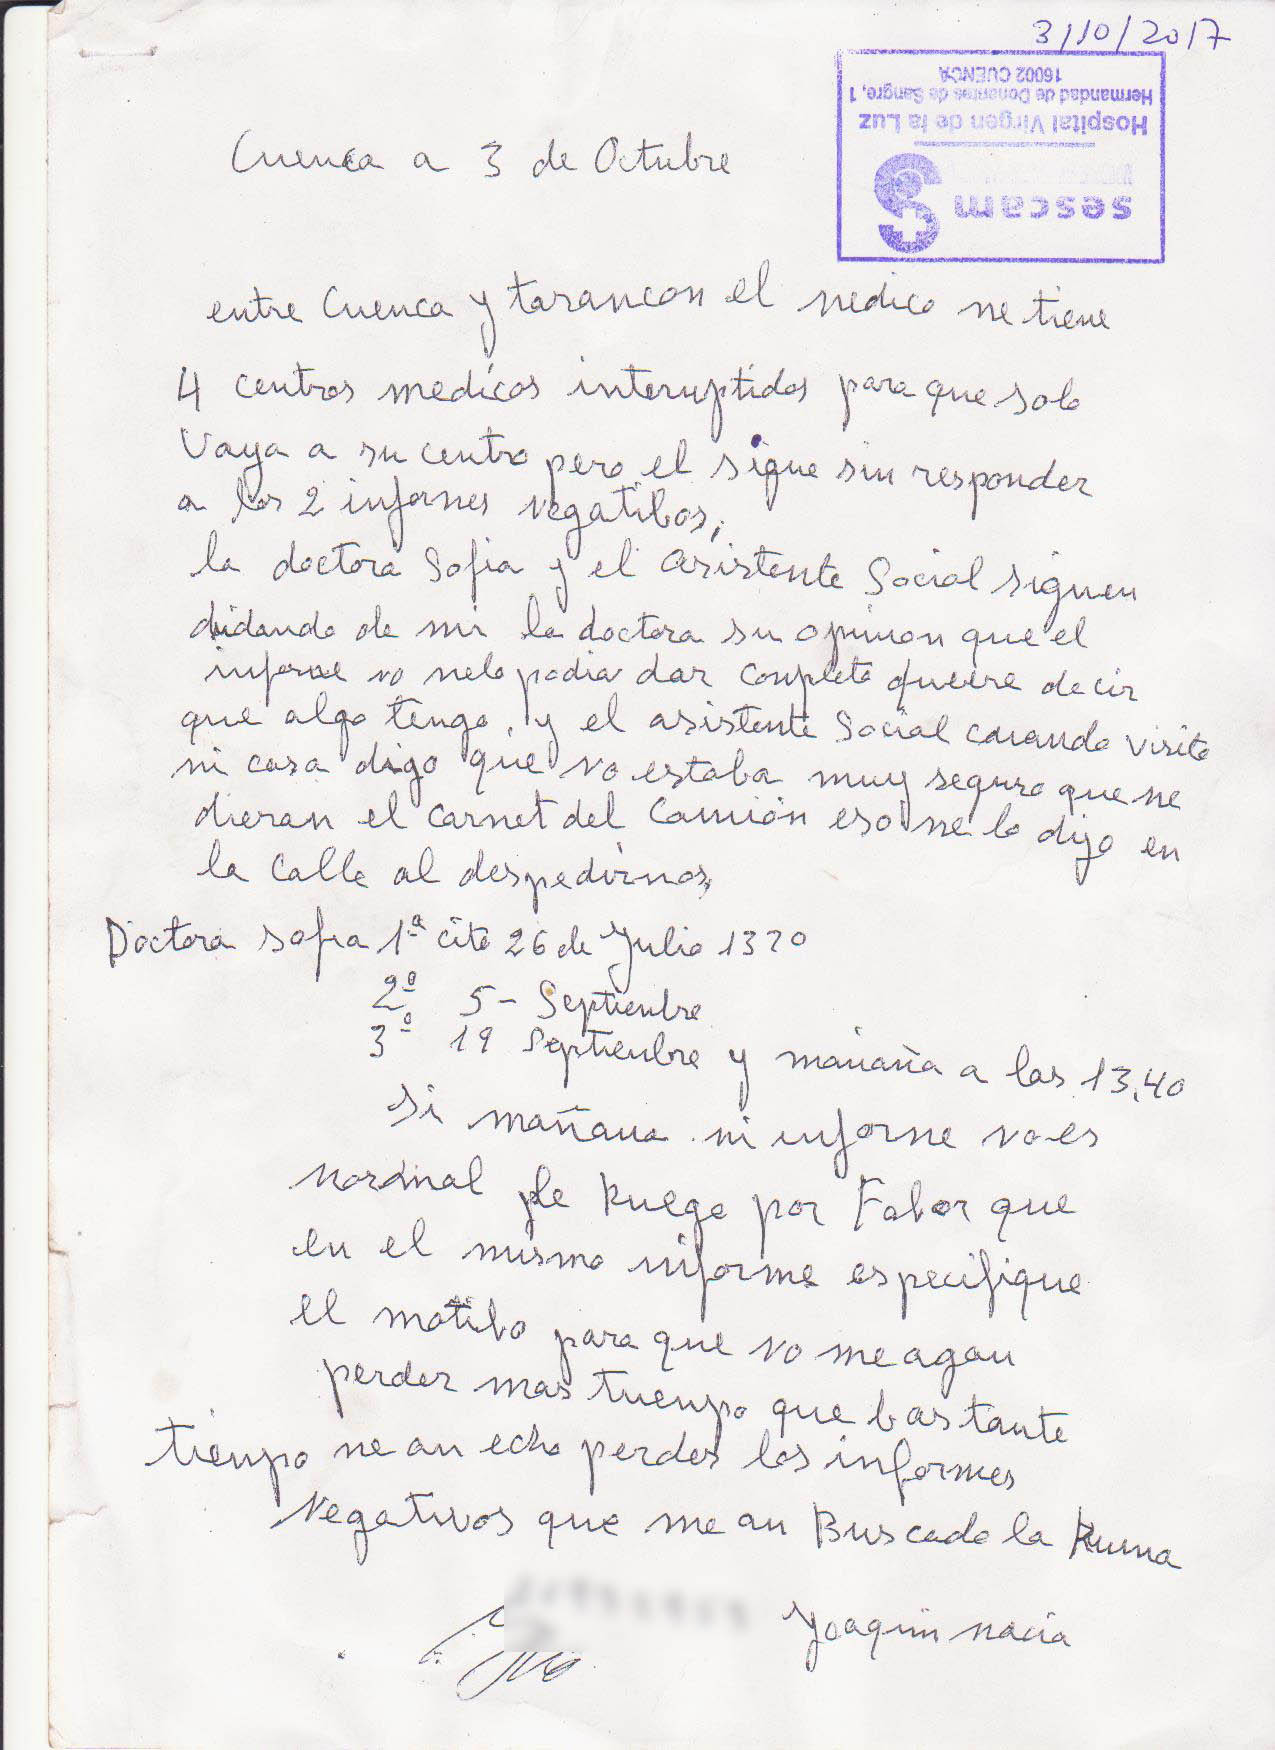 3/10/2017
sescam
Hospital Virgen de la Luz
Hermandad de Donantes de Sangre, 1
16002 CUENCA
Cuenca a 3 de Octubre
entre Cuenca y tarancon el nedico ne tiene
4 centros medicos interuptidos para que solo
Vaya a su centro pero el sigue sin responder
a los 2 infornes negatibos,
la doctora Sofia y el asistente Social siguen
dudando de mi la doctora su opinion que el
informe no nelo podia dar conpleto queire decir
que algo tengo, y el asistente Social cuando visito
mi casa digo que no estaba muy seguro que ne
dieran el carnet del Camión eso ne lo dijo en
la Calle al despedirnos,
Doctora Sofia 1ª cita 26 de Julio 1320
2º 5 - Septienbre
3º 19 Septienbre y mañana a las 13,40
Si mañana mi inforne no es
normal le Ruego por Fabor que
en el mismo informe especifique
el motibo para que no me agan
perder mas tienpo que bastante
tienpo ne an echo perder los informes
Negativos que me an Buscado la Ruina
Joaquin macia